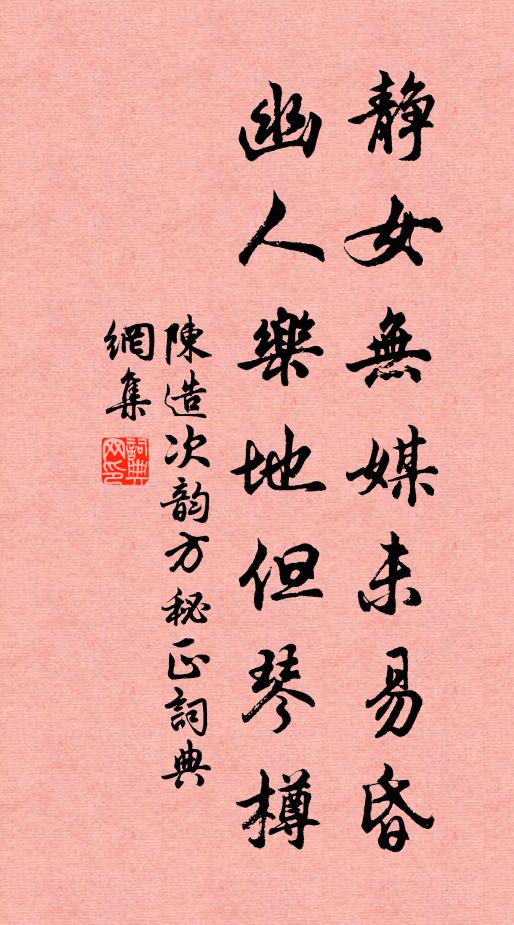 静女無媒未易昏
幽人樂地但琴樽
陳造次韵方秘正詞典
網集
詞典
网印